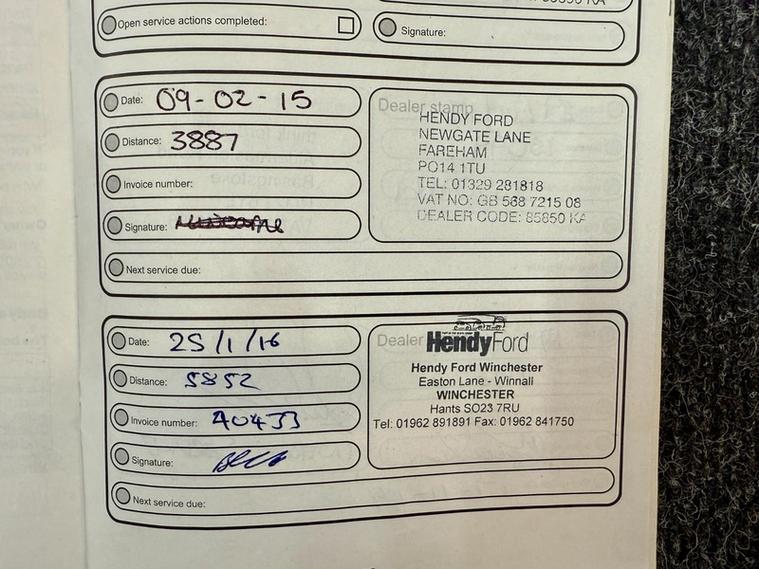 Open service actions completed:
Signature:
Date: 09-02-15
Distance: 3887
Invoice number:
Signature:
Next service due:
Dealer stamp
HENDY FORD
NEWGATE LANE
FAREHAM
PO14 1TU
TEL: 01329 281818
VAT NO: GB 568 7215 08
DEALER CODE: 85850 KA
Date: 25/1/16
Distance: 5852
Invoice number: A0433
Signature:
Next service due:
Dealer
HendyFord
Hendy Ford Winchester
Easton Lane - Winnall
WINCHESTER
Hants SO23 7RU
Tel: 01962 891891 Fax: 01962 841750